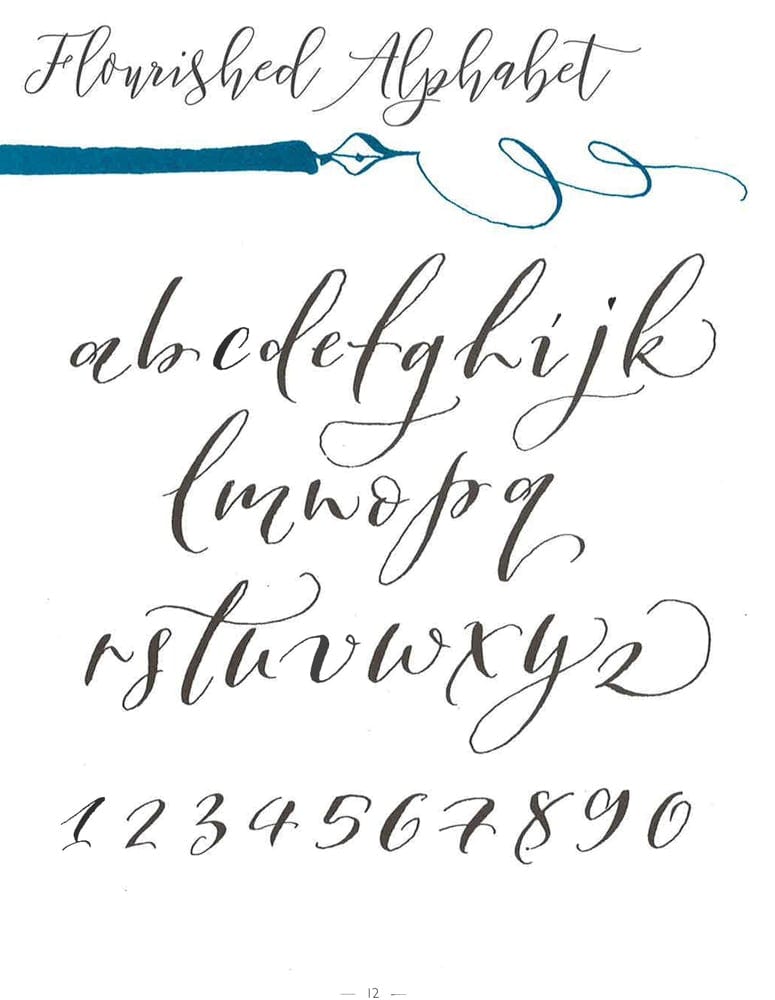 Flourished Alphabet
abcdefghijk
lmnopq
rstuvwxyz
1234567890
— 12 —